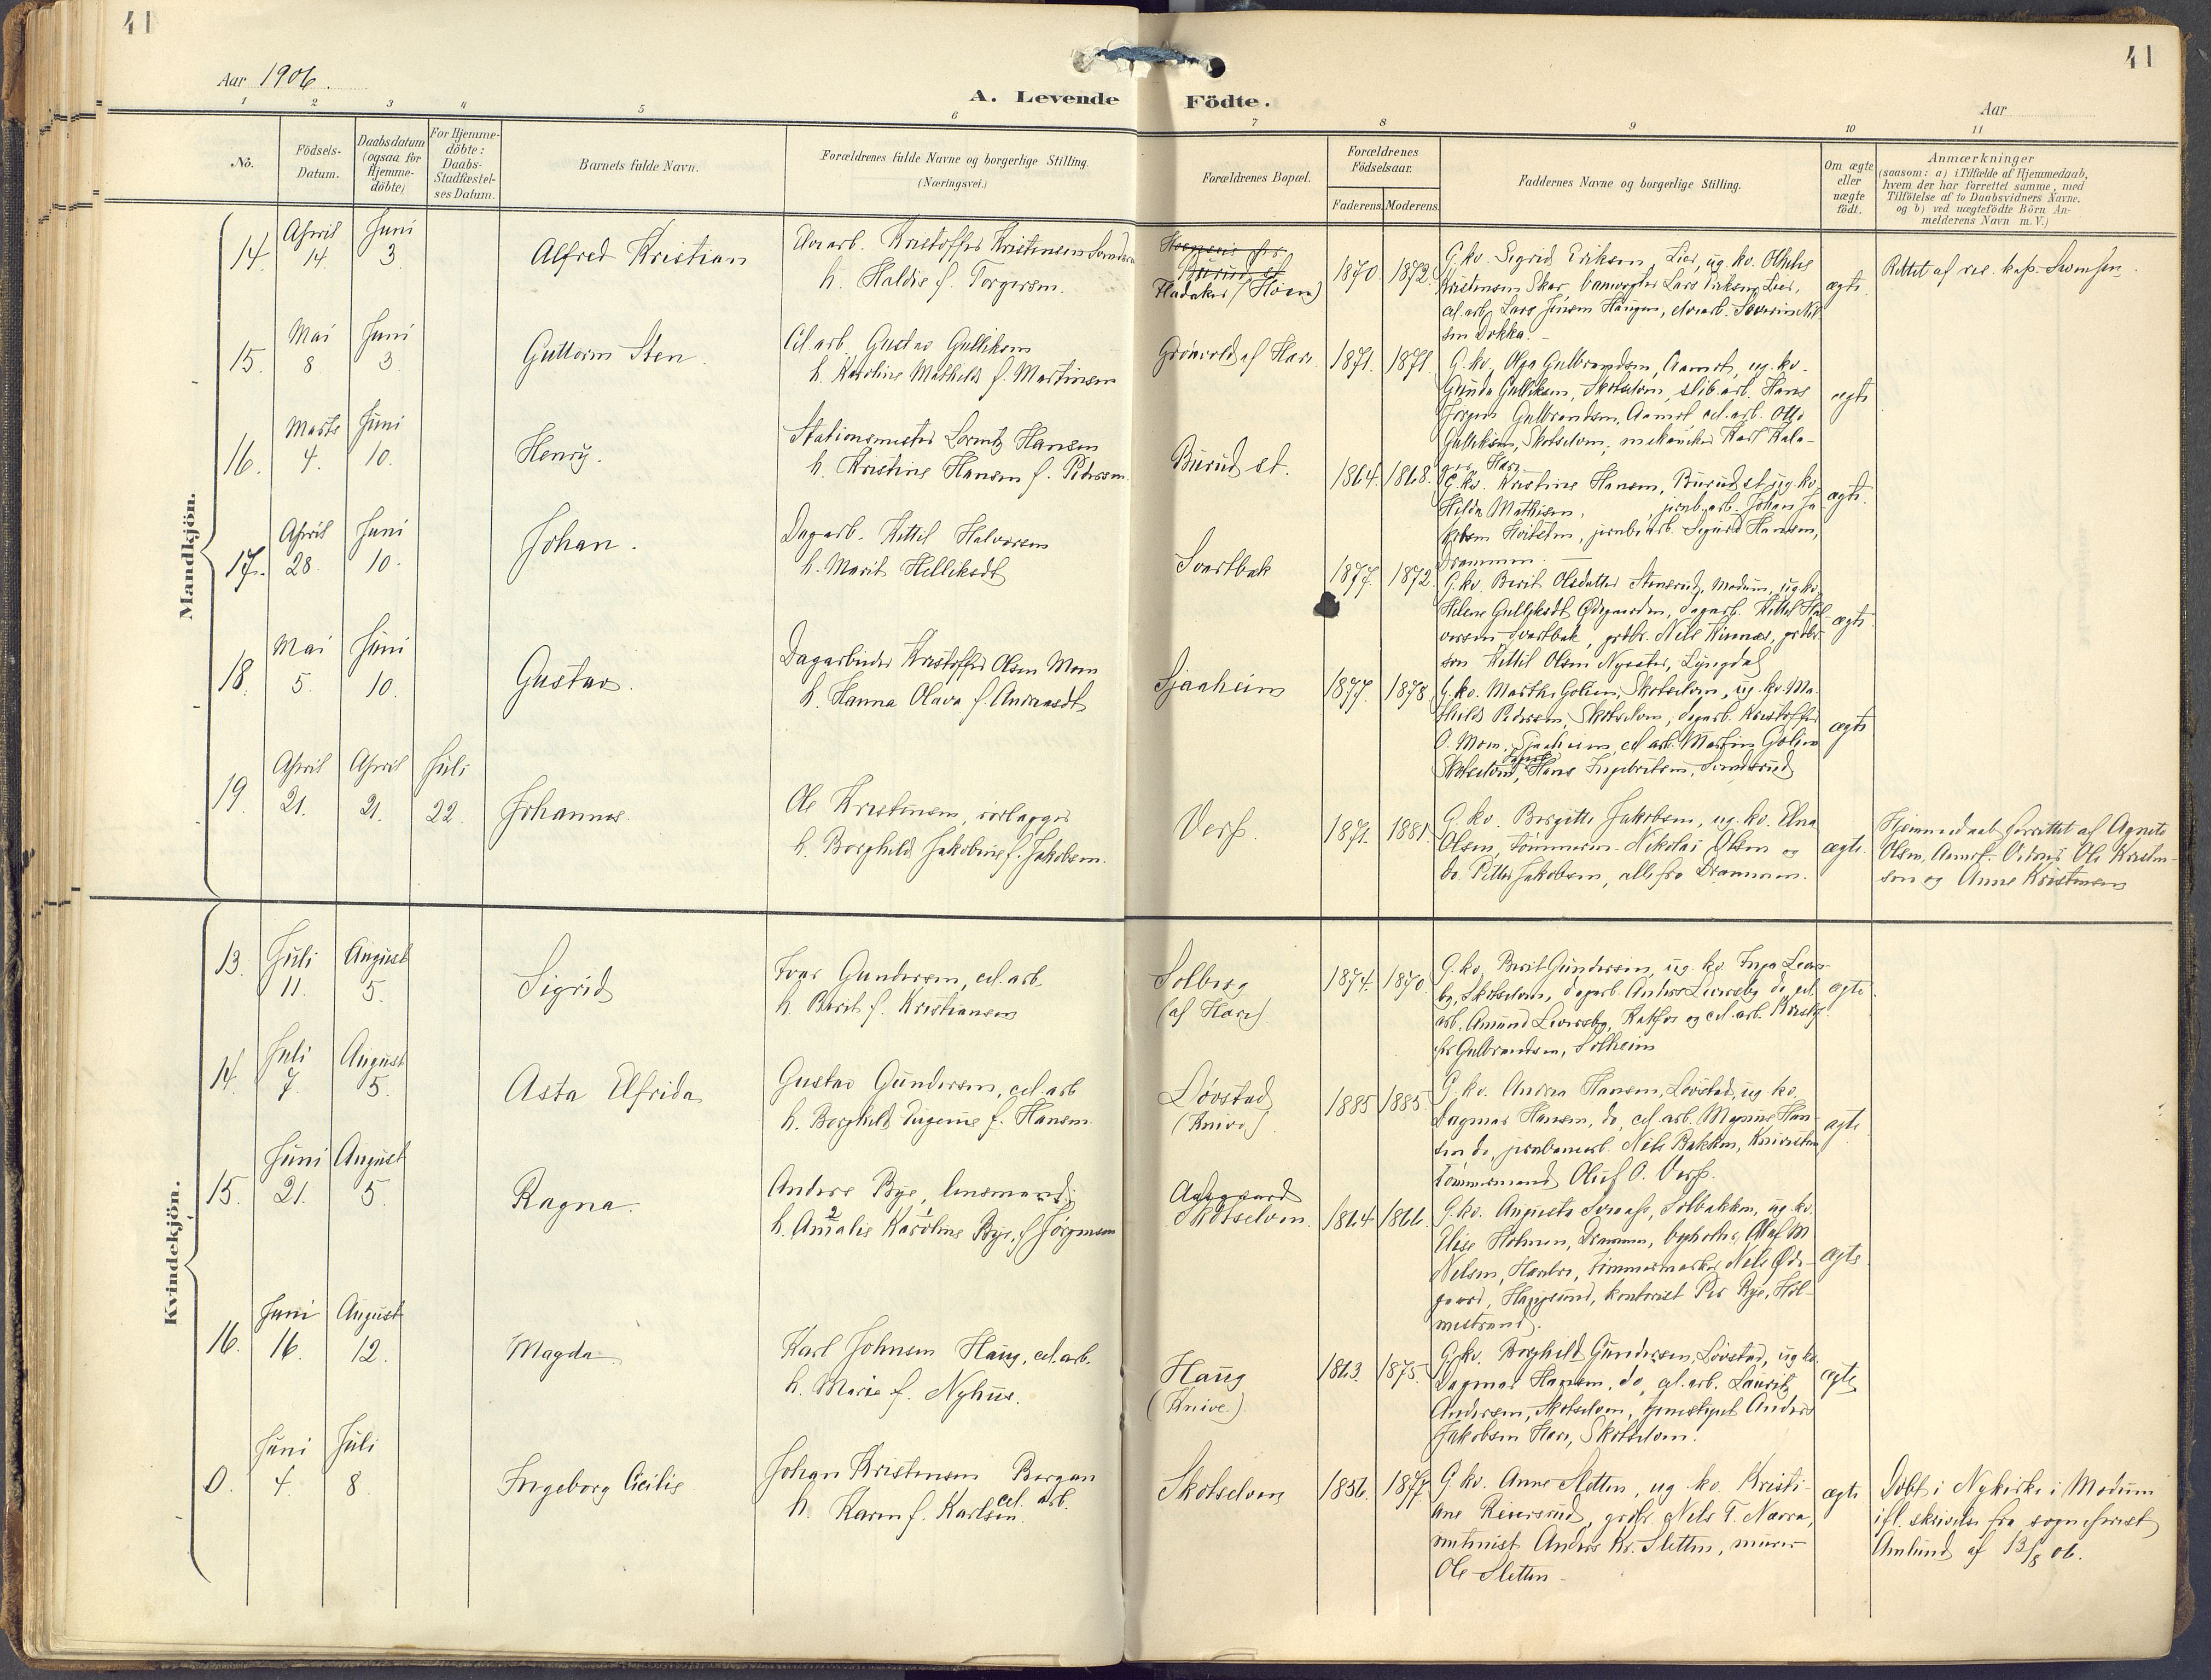 41
41
Aar 1906.
A. Levende Födte.
Aar
1 2 3 4 5 6 7 8 9 10 11
No.
Födsels-
Datum.
Daabsdatum
(ogsaa for
Hjemme-
döbte)
For Hjemme-
döbte:
Daabs-
Stadfæstel-
ses Datum.
Barnets fulde Navn.
Forældrenes fulde Navne og borgerlige Stilling.
(Næringsvei.)
Forældrenes Bopæl.
Forældrenes
Födselsaar.
Faderens. Moderens.
Faddernes Navne og borgerlige Stilling.
Om ægte
eller
uægte
födt.
Anmærkninger
(saasom: a) i Tilfælde af Hjemmedaab,
hvem der har forrettet samme, med
Tilföielse af to Daabsvidners Navne.
og b) ved uægtefödte Börn An-
melderens Navn m. V.)
Mandkjön.
14. April 14. Juni 3. Alfred Kristian
Kristoffer Kristensen
h. Haldis f. Torgersen.
Fladaker (Hoen)
1870 1872.
G. kv. Sigrid Eriksen, Lier, ug. kv.
Kristensen Skar, banevogter Lars Eriksen Lier,
cel. arb. Lars Jensen Haugen, elvearb. Severin Nil-
sen Dokka.
ægte
Rettet af res. kap. Svensen.
15. Mai 8. Juni 3. Guttorm Sten.
Cel. arb. Gustav Gulliksen
h. Karoline Mathilde f. Martinsen
Grönvold af Hare
1871. 1871.
G. kv. Olga Gulbrandsen, Aamot, ug. kv.
Gunda Gulliksen, Skotselven, slib. arb. Hans
Jörgen Gulbrandsen, Aamot cel. arb. Otto
Gulliksen, Skotselven, mekaniker Karl Kala-
ægte
16. Marts 4. Juni 10. Henry.
Stationsmester Lorentz Hansen
h. Kristine Hansen f. Pedersen.
Burud st.
1864. 1868.
G. kv. Kristine Hansen, Burud st., ug. kv.
Hilda Mathisen, jernb. arb. Johan Ja-
kobsen, jernb. arb. Sigurd Hansen,
Drammen.
ægte.
17. April 28. Juni 10. Johan.
Dagarb. Kittil Halvorsen
h. Marit Helliksdt
Svartbak
1877. 1872.
G. kv. Berit Olsdatter Stensrud, Modum, ug. kv.
Helene Gulliksdt Ødegaarden, dagarb. Kittil Hal-
vorsen Svartbak, grdbr. Nils, grdbr-
søn Kittil Olsen Nyseter, Lyngdal
ægte.
18. Mai 5. Juni 10. Gustav.
Dagarbeider Kristoffer Olsen Moen
h. Hanna Olava f. Andreasdt
Sjaaheim
1877. 1878.
G. kv. Marthe Golien, Skotselven, ug. kv. Ma-
thilde Pedersen, Skotselven, dagarb. Kristoffer
O. Moen, Sjaaheim, cel. arb. Martin Golien
Skotselven, dagarb. Hans Ingebretsen,
ægte
19. April 21. April 21. Juli 22. Johannes.
Ole Kristensen, rörlægger
h. Borghild Jakobine f. Jakobsen.
Verp.
1871. 1881.
G. kv. Birgitte Jakobsen, ug. kv. Elna
Olsen, tömmerm. Nikolai Olsen og
do Petter Jakobsen, alle fra Drammen.
ægte.
Hjemmedaab forrettet af Agnete
Olsen, Aamot. Vidner Ole Kristen-
sen og Anne Kristensen
Kvindekjön.
13. Juli 11. August 5. Sigrid
Iver Gundersen, cel. arb.
h. Berit f. Kristiansen
Solberg
(af Hare)
1874. 1870.
G. kv. Berit Gundersen, ug. kv. Inga Leers-
by, Skotselven, dagarb. Anders Leersby do, cel.
arb. Amund Leversby, Kakfos og cel. arb. Kristof-
fer Gulbrandsen, Solheim
ægte
14. Juli 7. August 5. Asta Elfrida
Gustav Gundersen, cel. arb
h. Borghild Eugenie f. Hansen.
Lövstad
(Knive)
1885 1885.
G. kv. Andrea Hansen, Lövstad, ug. kv.
Dagmar Hansen, do, cel. arb. Magnus Han-
sen do, jernbanearb. Nils Bakken, Kniveien
Tömmermand Oluf O. Verp.
ægte
15. Juni 21. August 5. Ragna.
Anders Bye, lensmand.
h. Amalie Karoline Bye, f. Jörgensen
Aasgaard
Skotselven.
1864. 1866.
G. kv. Augusta Svaae, Solbakken, ug. kv.
Elise Holmen, Drammen, Olaf M.
Nelsen, Horten, tömmermerker Nils Øde-
gaard, Haugsund, kontorist Per Bye, Hol-
mestrand.
ægte
16. Juni 16. August 12. Magda
Karl Johnsen Haug, cel. arb.
h. Marie f. Nyhus.
Haug
(Knive.)
1863. 1875.
G. kv. Borghild Gundersen, Lövstad, ug. kv.
Dagmar Hansen, do, cel. arb. Laurits
Andersen, Skotselven, Anders
Jakobsen Hare, Skotselven.
ægte
0. Juni 4. Juli 8. Ingeborg Cicilie
Johan Kristensen Bergan
cel. arb.
h. Karen f. Karlsen.
Skotselven
1856. 1877.
G. kv. Anne Sletten, ug. kv. Kristi-
ane Reiersrud, grdbr. Nils T. Nærra,
mentenist Anders Kr. Sletten, murer
Ole Sletten
ægte
Döbt i Nykirke i Modum
ifl. skrivelse fra sogneprest
Amlund af 13/8 06.